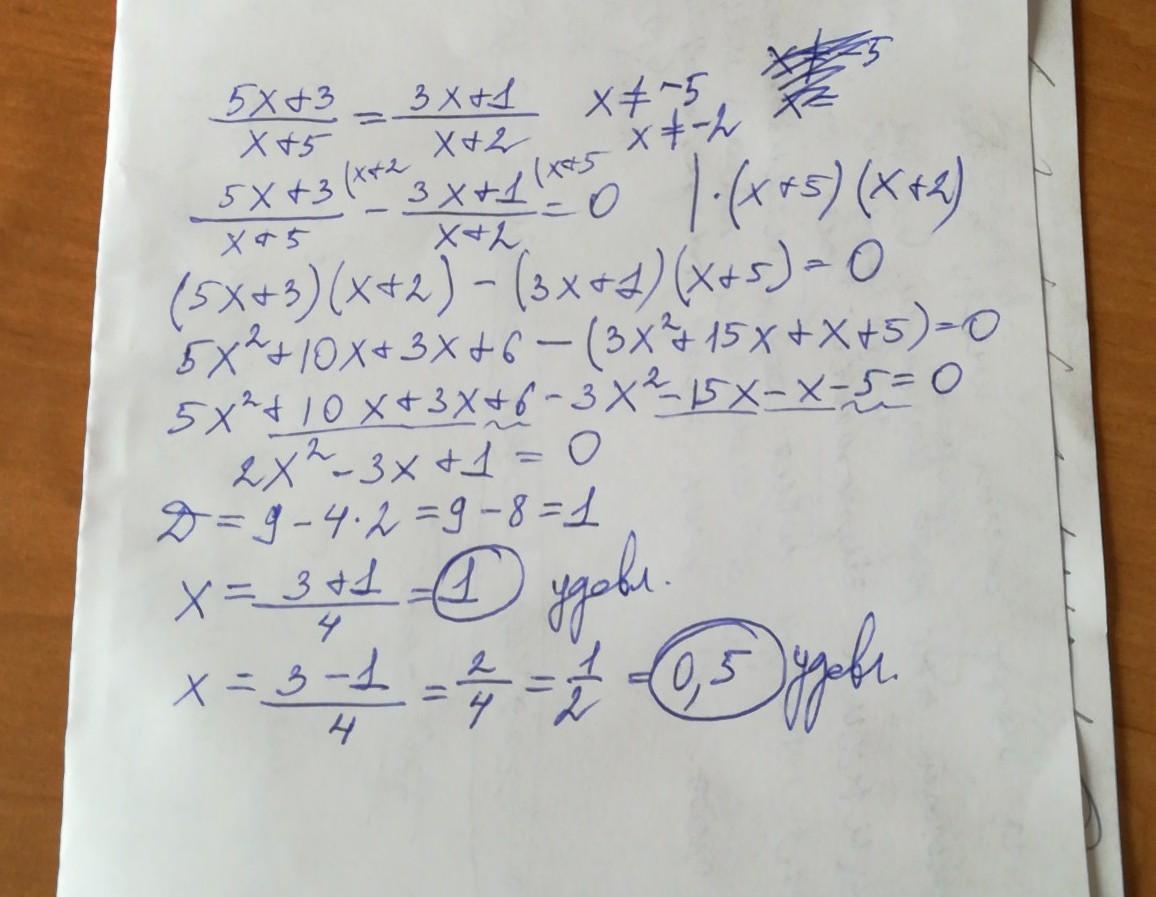 (5x+3)/(x+5) = (3x+1)/(x+2) x≠-5
x≠-2
(5x+3)/(x+5) (x+2 - (3x+1)/(x+2) (x+5 = 0 | ·(x+5)(x+2)
(5x+3)(x+2) - (3x+1)(x+5) = 0
5x²+10x+3x+6 - (3x²+15x+x+5) = 0
5x²+10x+3x+6-3x²-15x-x-5 = 0
2x²-3x+1 = 0
D = 9-4·2 = 9-8 = 1
x = (3+1)/4 = 1 удовл.
x = (3-1)/4 = 2/4 = 1/2 = 0,5 удовл.